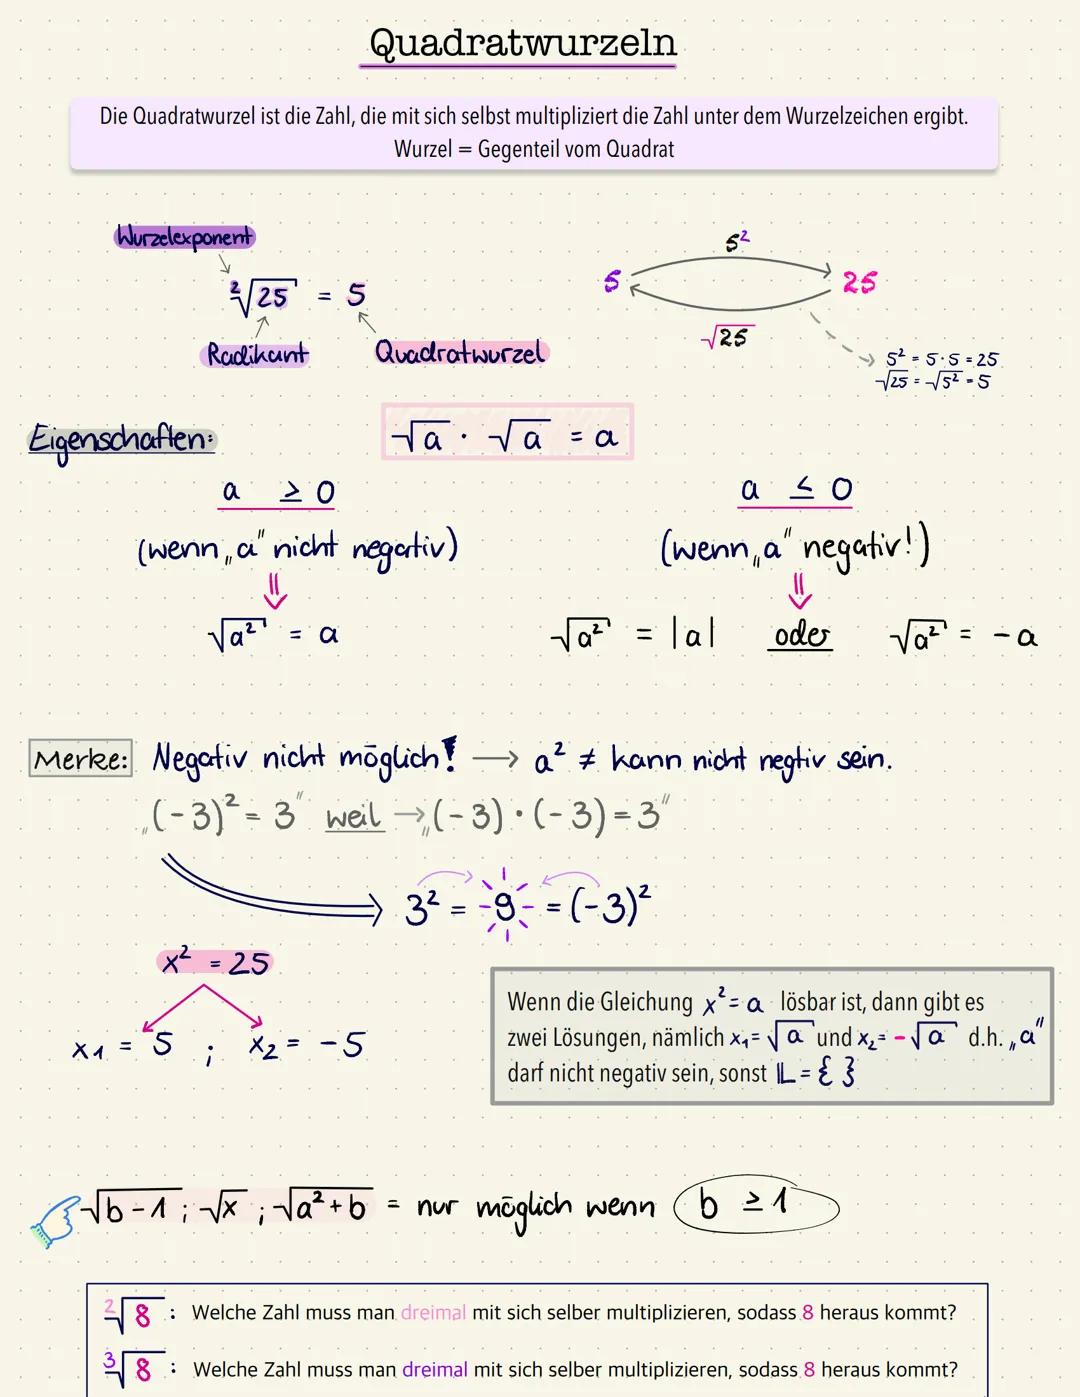 Quadratwurzeln
Die Quadratwurzel ist die Zahl, die mit sich selbst multipliziert die Zahl unter dem Wurzelzeichen ergibt.
Wurzel = Gegenteil vom Quadrat
Wurzelexponent
²√25 = 5
Radikant
Quadratwurzel
5²
5
25
√25
5² = 5·5 = 25
√25 = √5² = 5
Eigenschaften:
√a · √a = a
a ≥ 0
(wenn „a" nicht negativ)
⇓
√a² = a
a ≤ 0
(wenn „a" negativ!)
⇓
√a² = |a| oder √a² = -a
Merke: Negativ nicht möglich! → a² ≠ kann nicht negtiv sein.
„(-3)² = 3" weil → „(-3)·(-3) = 3"
3² = 9 = (-3)²
x² = 25
x₁ = 5 ; x₂ = -5
Wenn die Gleichung x² = a lösbar ist, dann gibt es
zwei Lösungen, nämlich x₁= √a und x₂= -√a d.h. „a"
darf nicht negativ sein, sonst 𝕃 = { }
√b-1 ; √x ; √a²+b = nur möglich wenn b ≥ 1
²√8 : Welche Zahl muss man dreimal mit sich selber multiplizieren, sodass 8 heraus kommt?
³√8 : Welche Zahl muss man dreimal mit sich selber multiplizieren, sodass 8 heraus kommt?